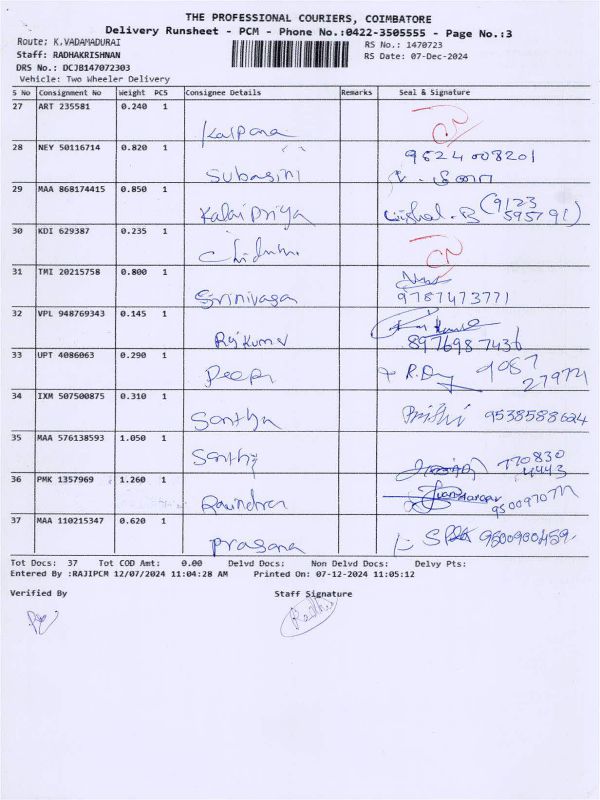 THE PROFESSIONAL COURIERS, COIMBATORE
Delivery Runsheet - PCM - Phone No.:0422-3505555 - Page No.:3
Route; K.VADAMADURAI RS No.: 1470723
Staff: RADHAKRISHNAN RS Date: 07-Dec-2024
DRS No.: DCJB147072303
Vehicle: Two Wheeler Delivery
S No Consignment No Weight PCS Consignee Details Remarks Seal & Signature
27 ART 235581 0.240 1
Kalpana CN
28 NEY 50116714 0.820 1 9524 008201
Subasini
29 MAA 868174415 0.850 1
Kalai Priya (9123
595791)
30 KDI 629387 0.235 1
CN
31 TMI 20215758 0.800 1
Srinivasan 9787473771
32 VPL 948769343 0.145 1
Rajkumar 8976987436
33 UPT 4086063 0.290 1
Deepa 9087
34 IXM 507500875 0.310 1
Santhya Prithi 9538588624
35 MAA 576138593 1.050 1
Santhy 770830
4443
36 PMK 1357969 1.260 1
Ravindran
37 MAA 110215347 0.620 1
Prasana 9500900459
Tot Docs: 37 Tot COD Amt: 0.00 Delvd Docs: Non Delvd Docs: Delvy Pts:
Entered By :RAJIPCM 12/07/2024 11:04:28 AM Printed On: 07-12-2024 11:05:12
Verified By Staff Signature
Radha